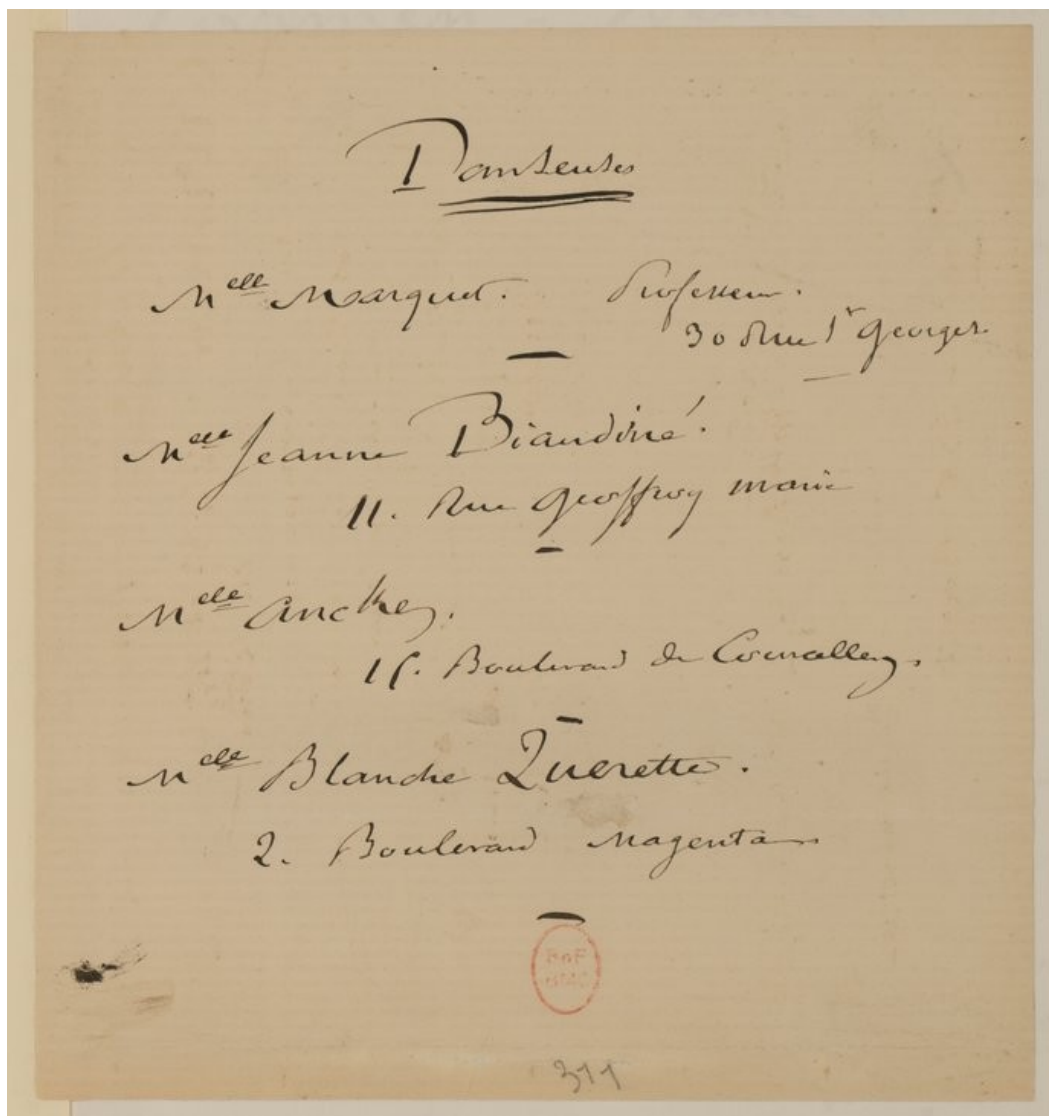 Danseuses
Melle Marquet. Professeur.
30 Rue St Georges
Melle Jeanne Biaudiné.
11. Rue Geoffroy marie
Melle anckey.
15. Boulevard de Courcelles
Melle Blanche Querette.
2. Boulevard Magenta
BnF
MMC
311